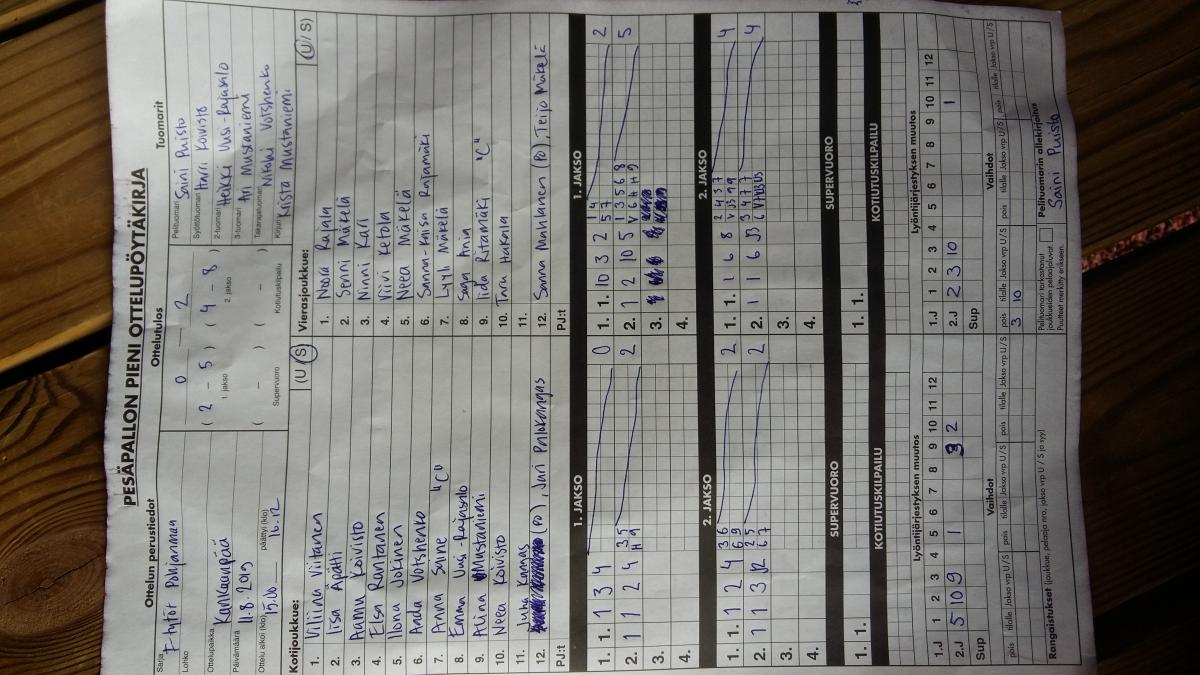 PESÄPALLON PIENI OTTELUPÖYTÄKIRJA
Ottelun perustiedot
Sarja F-tytöt Pohjanmaa
Lohko
Ottelupaikka Kankaanpää
Päivämäärä 11.8.2019
Ottelu alkoi (klo) 15.00 päättyi (klo) 16.12
Ottelutulos
0 2
( 2 - 5 ) ( 4 - 8 )
1. jakso 2. jakso
( - ) ( - )
Supervuoro Kotiutuskilpailu
Tuomarit
Pelituomari Saini Puisto
Syöttötuomari Harri Koivisto
2-tuomari Heikki Uusi-Rajasalo
3-tuomari Ari Mustaniemi
Takarajatuomari Nikolai Votshenko
Kirjuri Krista Mustaniemi
Kotijoukkue: (U / S)
1. Viliina Viitanen
2. Iisa Äpätti
3. Aamu Koivisto
4. Elsa Rantanen
5. Ilona Jokinen
6. Anda Votshenko
7. Anna Saine "C"
8. Emma Uusi-Rajasalo
9. Alina Mustaniemi
10. Neea Koivisto
11.
12.
PJ:t
Juha Kangas (PD), Jari Palokangas
Vierasjoukkue: (U / S)
1. Noora Rajala
2. Senni Mäkelä
3. Ninni Kari
4. Viivi Ketola
5. Neea Mäkelä
6. Sanna-Kaisa Rajamäki
7. Lyyli Mäkelä
8. Saga Ania
9. Iida Ritamäki "C"
10. Tara Hakala
11.
12.
PJ:t
Sanna Manlanen (PD), Teijo Mäkelä
1. JAKSO
1. JAKSO
1. 1. 1 3 4 0
2. 1 1 2 4 3 5 2
H 9
3.
4.
1. 1. 10 3 2 2
2. 1 2 10 5 5
3.
4.
2. JAKSO
2. JAKSO
1. 1. 1 2 4 3 6 2
6 9
2. 1 1 3 2 5 2
6 7
3.
4.
1. 1. 1 6 8 2 4 3 7 4
2. 1 1 6 3 4 7 7 4
3.
4.
SUPERVUORO
SUPERVUORO
1. 1.
1. 1.
KOTIUTUSKILPAILU
KOTIUTUSKILPAILU
Lyöntijärjestyksen muutos
1 2 3 4 5 6 7 8 9 10 11 12
1.J
2.J 5 10 9 1 3 2
Sup
Lyöntijärjestyksen muutos
1 2 3 4 5 6 7 8 9 10 11 12
1.J
2.J 2 3 10 1
Sup
Vaihdot
pois tilalle Jakso vrp U / S pois tilalle Jakso vrp U / S pois tilalle Jakso vrp U / S
Vaihdot
pois tilalle Jakso vrp U / S pois tilalle Jakso vrp U / S pois tilalle Jakso vrp U / S
3 10
Rangaistukset (joukkue, pelaaja nro, jakso vrp U / S ja syy)
Pelituomari tarkastanut
joukkueiden pelaajaluvat.
Puutteet merkitty erikseen.
Pelituomarin allekirjoitus
Saini Puisto